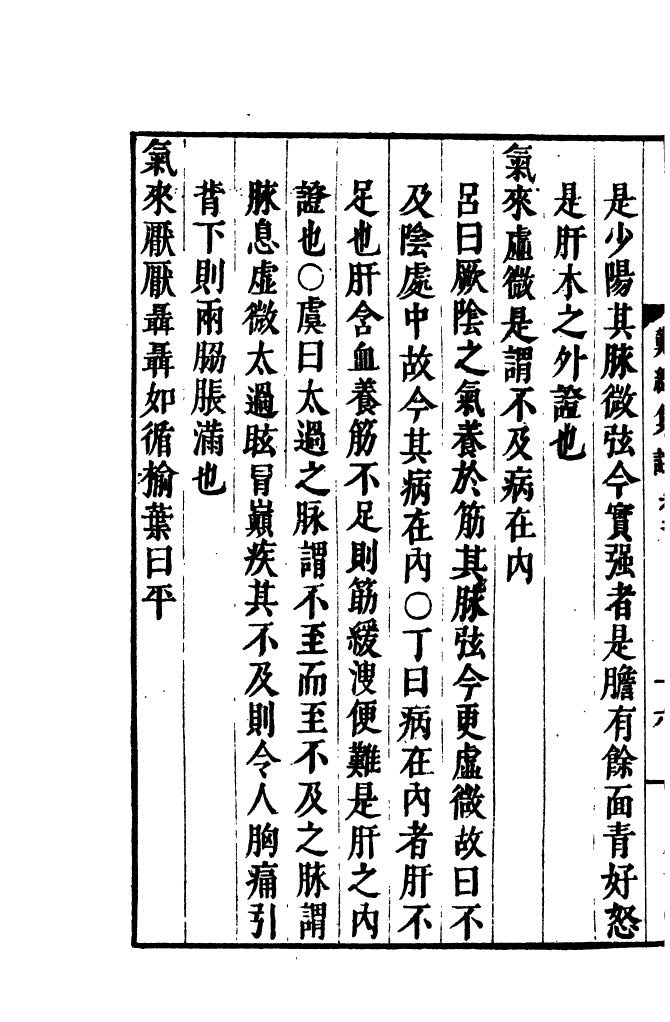 難經集註
是少陽其脉微弦今實强者是膽有餘面青好怒
是肝木之外證也
氣來虛微是謂不及病在內
呂曰厥陰之氣養於筋其脉弦今更虛微故曰不
及陰處中故今其病在內〇丁曰病在內者肝不
足也肝含血養筋不足則筋緩溲便難是肝之內
證也〇虞曰太過之脉謂不至而至不及之脉謂
脉息虛微太過眩冒巔疾其不及則令人胸痛引
背下則兩脇脹滿也
氣來厭厭聶聶如循榆葉曰平